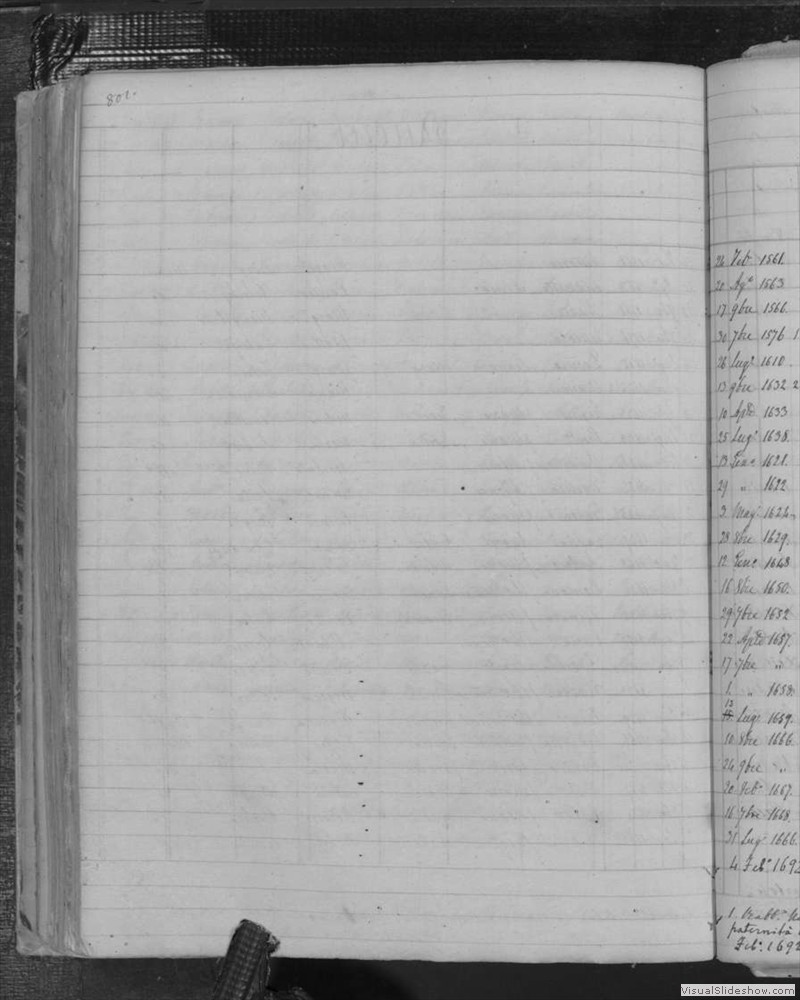 802.
26 Feb. 1561.
20 Ag.o 1563
17 9bre 1566.
30 7bre 1576 1
26 Lug.o 1610.
13 9bre 1632 2
10 Aple 1633
25 Lug.o 1638.
13 Genn.o 1621.
29 " 1622
3 Mag.o 1624
28 8bre 1629.
12 Genn.o 1648
16 8bre 1650.
29 7bre 1652
22 Aple 1657.
17 7bre "
1. " 1658.
12
Lug. 1659.
10 8bre 1666.
24 9bre "
20 Feb.o 1667.
16 7bre 1668.
31 Lug. 1666.
4 Feb.o 1692
1.
paternità
Feb.o 1692
VisualSlideshow.com